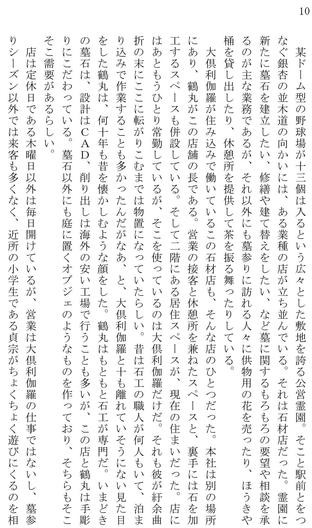 10
　某ドーム型の野球場が十三個は入るという広々とした敷地を誇る公営霊園。そこと駅前とをつ
なぐ銀杏の並木道の向かいには、ある業種の店が立ち並んでいる。それは石材店だった。霊園に
新たに墓石を建立したい、修繕や建て替えをしたい、など墓に関するもろもろの要望や相談を承
るのが主な業務であるが、それ以外にも墓参りに訪れる人々に供物用の花を売ったり、ほうきや
桶を貸し出したり、休憩所を提供して茶を振る舞ったりしている。
　大倶利伽羅が住み込みで働いているこの石材店も、そんな店のひとつだった。本社は別の場所
にあり、鶴丸がこの店舗の長である。営業の接客と休憩所を兼ねたスペースと、裏手には石を加
工するスペースも併設している。そして二階にある居住スペースが、現在の住まいだった。店に
はあともうひとり常勤しているが、そこを使っているのは大倶利伽羅だけだ。それも彼が紆余曲
折の末にここに転がりこむまでは物置になっていたらしい。昔は石工の職人が何人もいて、泊ま
り込みで作業することも多かったんだがなあ、と、大倶利伽羅と十も離れていそうにない見た目
をした鶴丸は、何十年も昔を懐かしむような顔をした。鶴丸はもともと石工が専門だ。いまどき
の墓石は、設計はＣＡＤ、削り出しは海外の安い工場で行うことも多いが、この店と鶴丸は手彫
りにこだわっている。墓石以外にも庭に置くオブジェのようなものを作っており、そちらもそこ
そこ需要があるらしい。
　店は定休日である木曜日以外は毎日開けているが、営業は大倶利伽羅の仕事ではないし、墓参
りシーズン以外では来客も多くなく、近所の小学生である貞宗がちょくちょく遊びにくるのを相